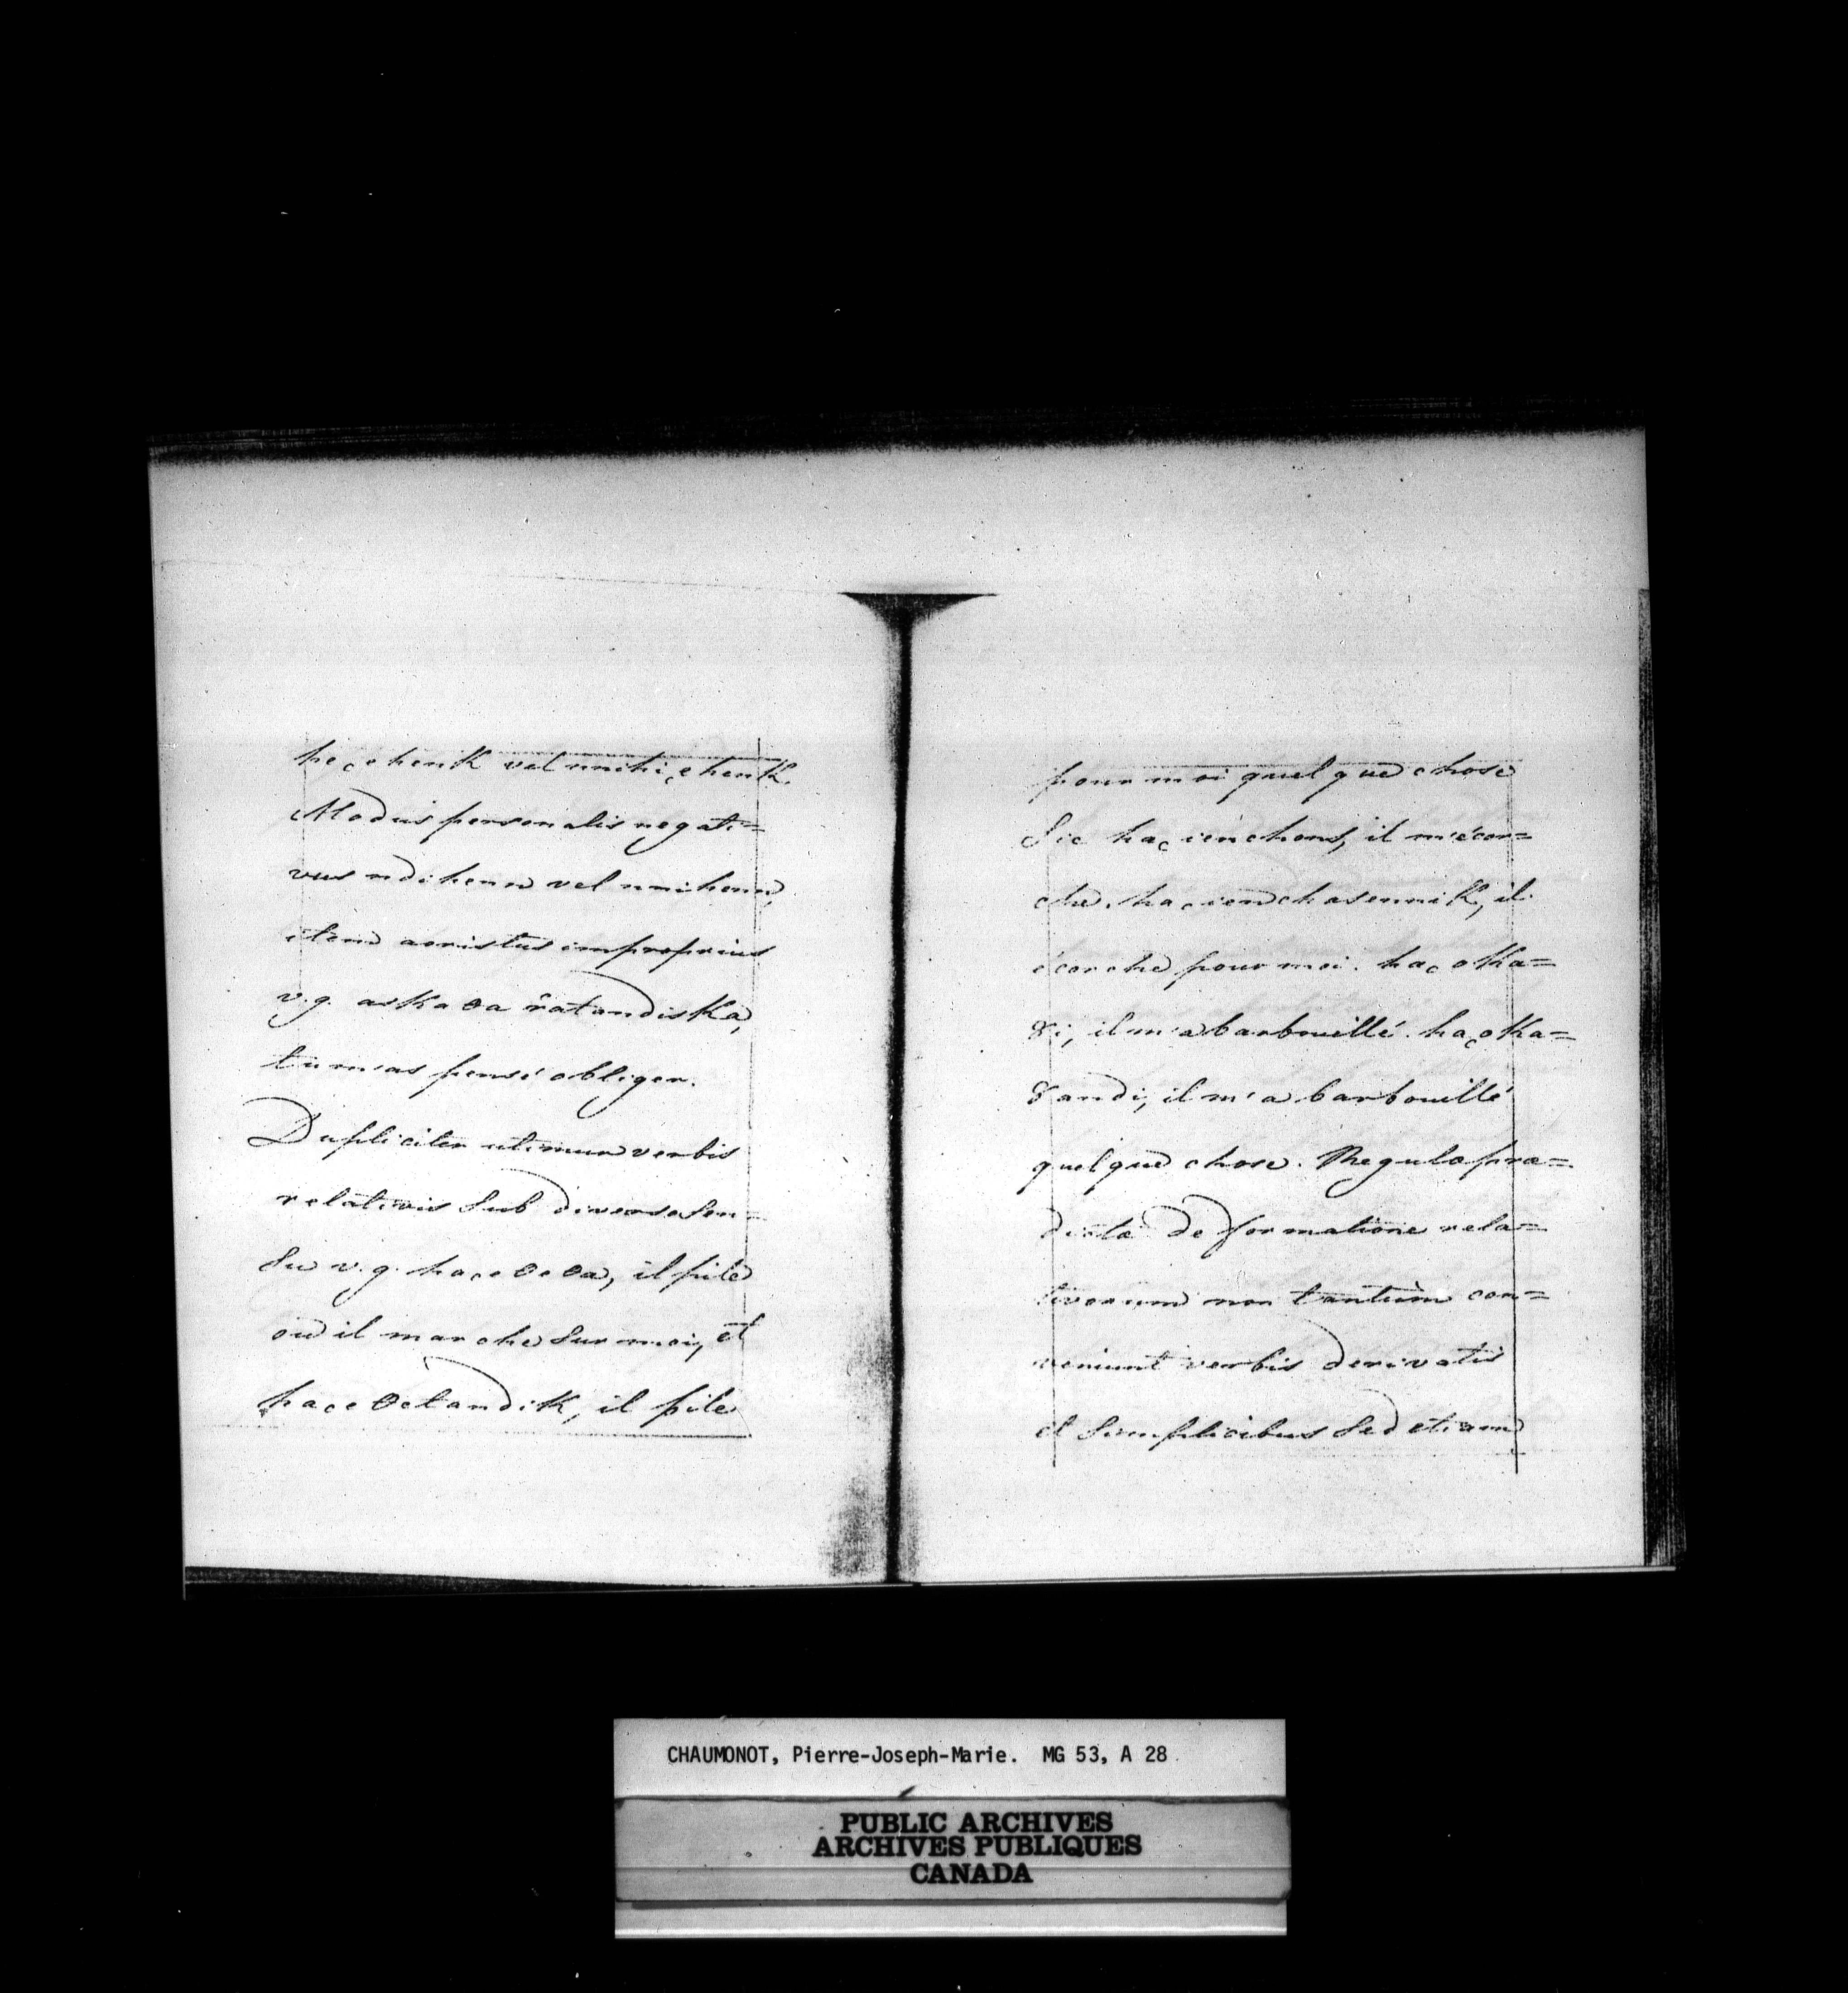 heҫehenk vel nnihiҫehenk.
Modus personalis negati=
vus ndihenn vel nnihenn,
item aoristus improprius
v.g. askaθa ratandiska,
tu m'as pensé obliger.
Dupliciter utimur verbis
relativis sub diverso sen=
su v.g. haҫeθeθa, il pile
ou il marche sur moi, et
haҫeθetandik, il pile
pour moi quelque chose
Sic haҫienchons, il m'écor=
che. haҫiendchasennik, il
écorche pour moi. haҫoka=
8i, il m'a barbouillé. haҫoka=
8andi, il m'a barbouillé
quelque chose. Regula præ=
dicta de formatione rela=
tivorum non tantùm con=
veniunt verbis derivatis
et simplicibus sed etiam
CHAUMONOT, Pierre-Joseph-Marie. MG 53, A 28
PUBLIC ARCHIVES
ARCHIVES PUBLIQUES
CANADA